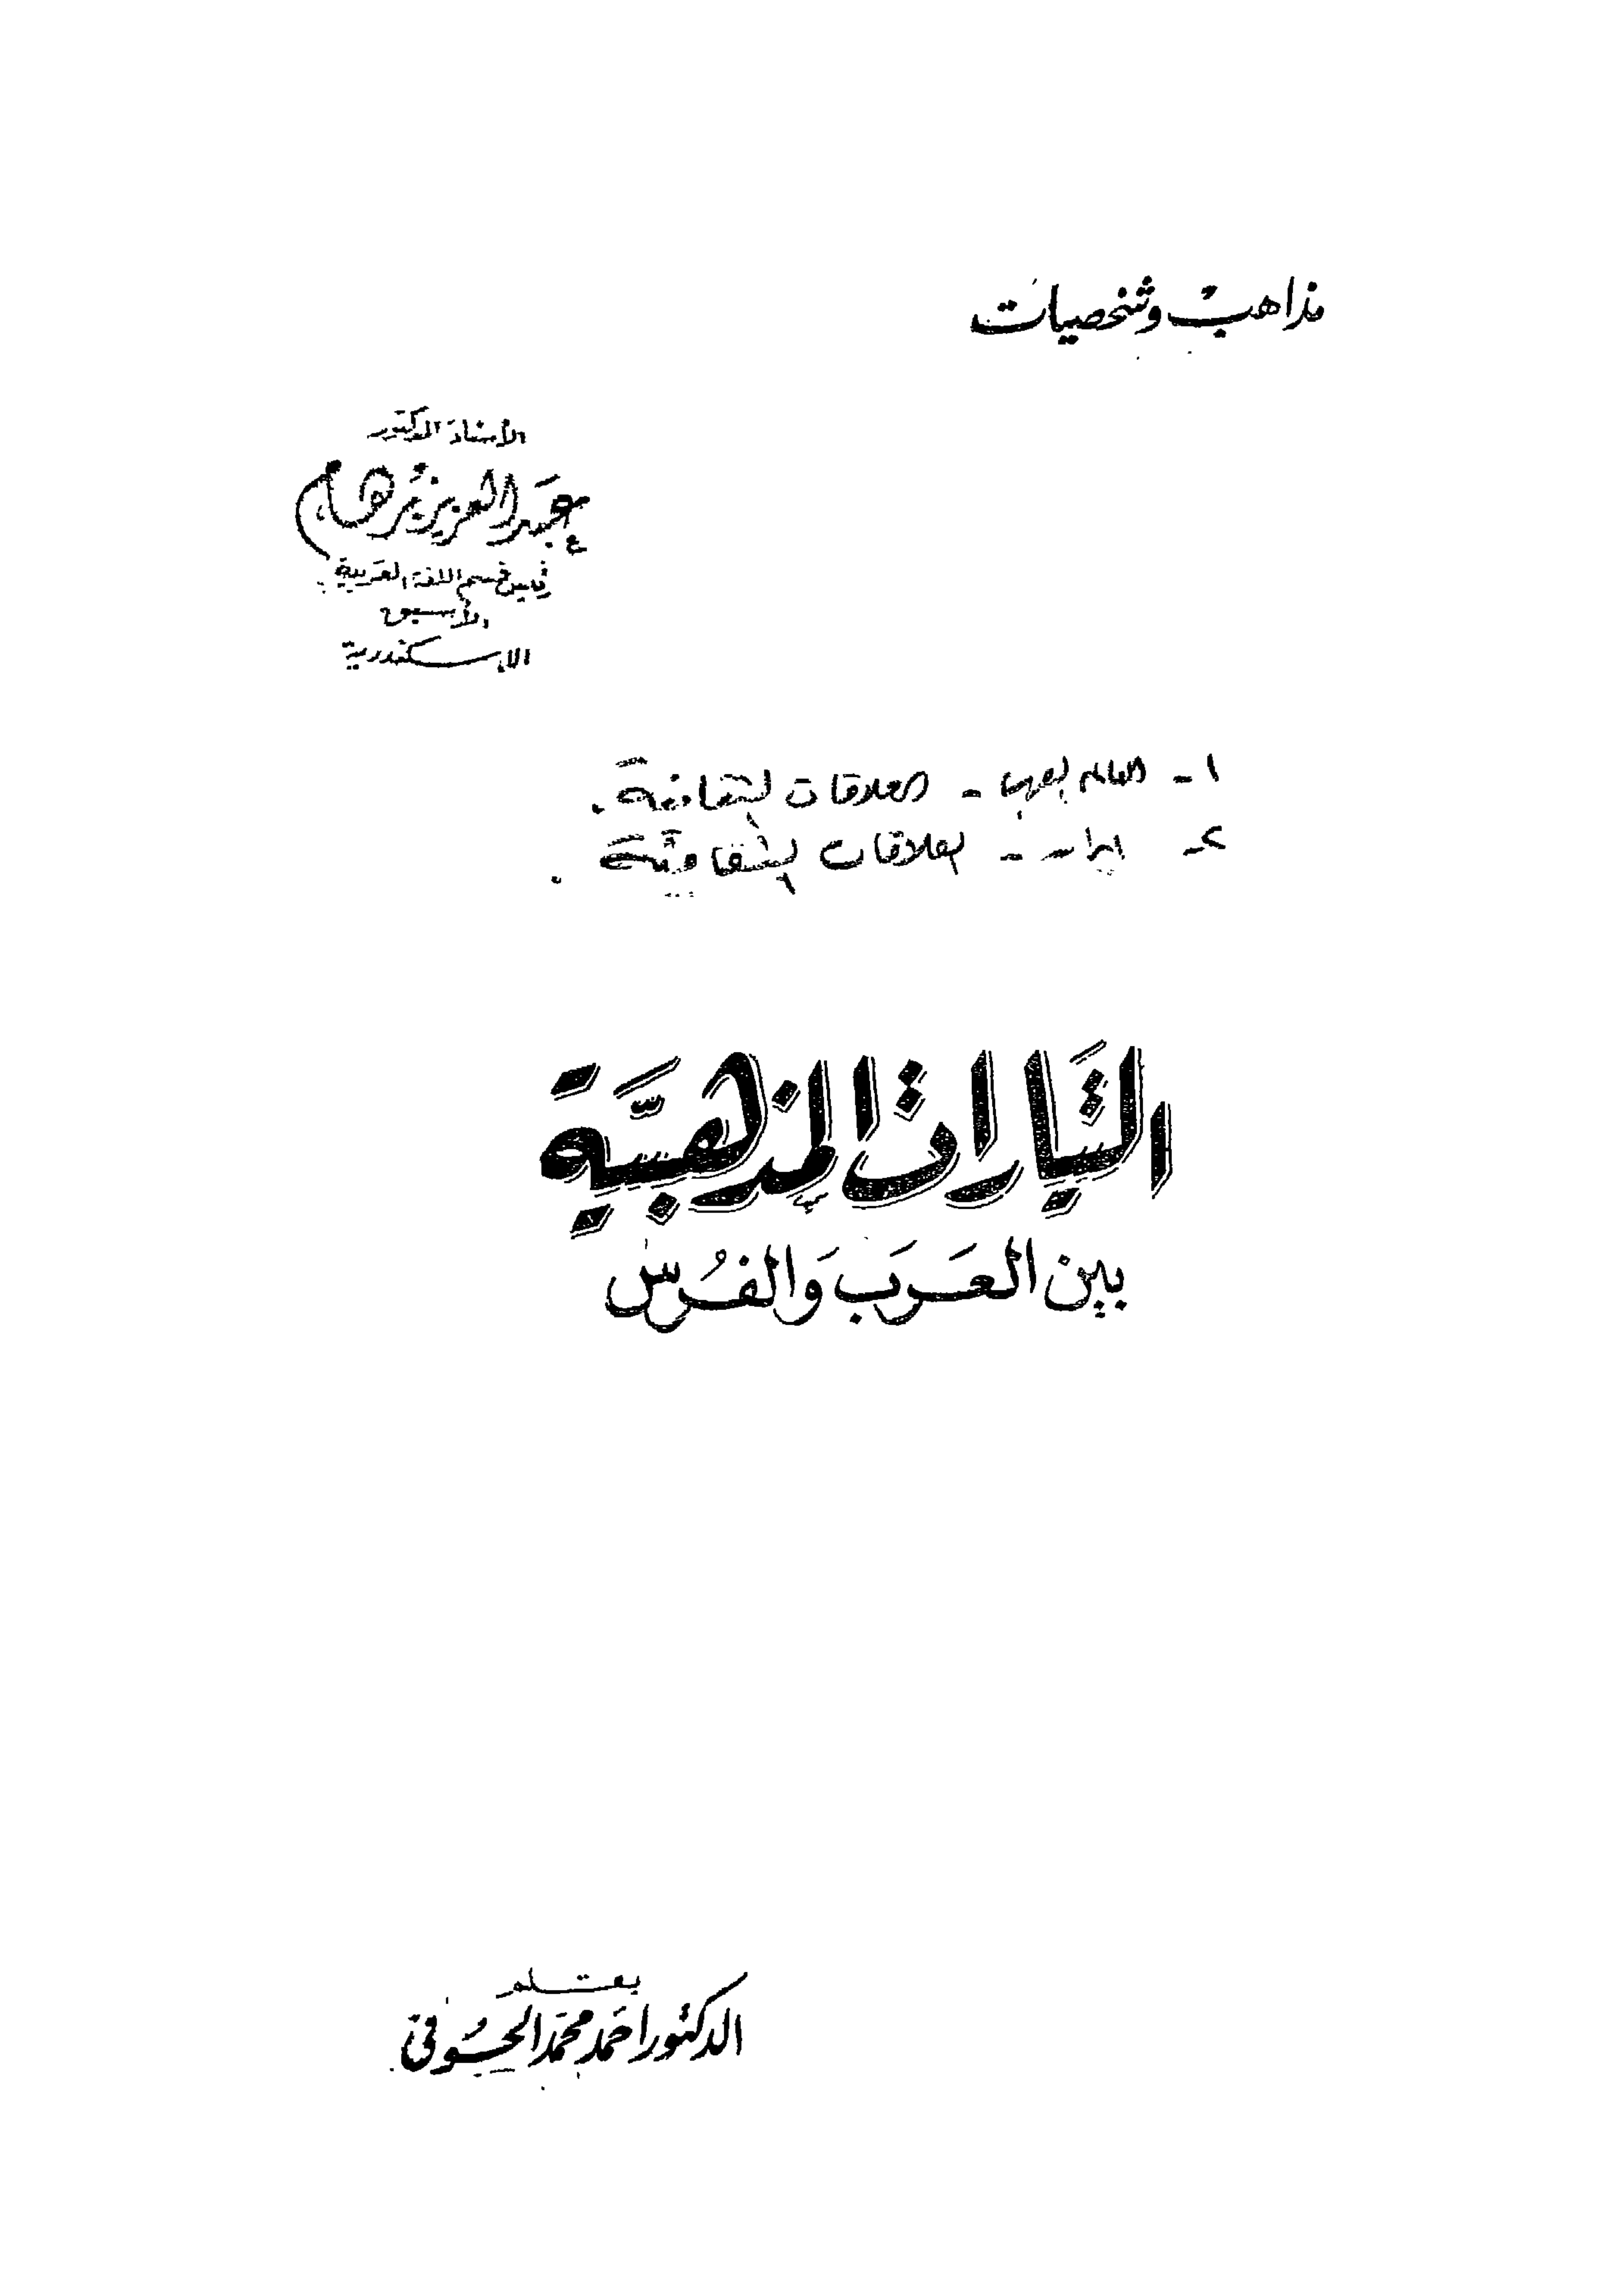 مذاهب وشخصيات
الأستاذ الدكتور
عبد العزيز برهام
رئيس قسم اللغة العربية
الأسبق
الاسكندرية
١ - العالم العربي - العلاقات الثقافية .
٢ - ايران - العلاقات الثقافية .
التيارات المذهبية
بين العرب والفرس
بقلم
الدكتور احمد محمد الحوفى